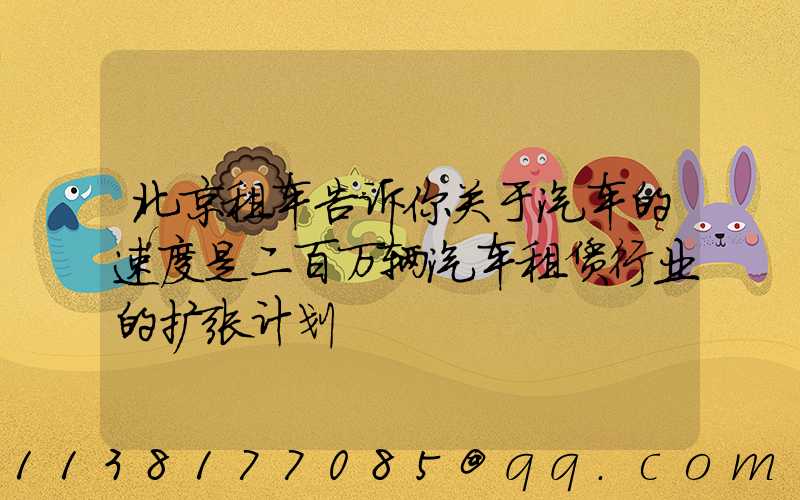 ENGLISH
北京租车告诉你关于汽车的
速度是二百万辆汽车租赁行业
的扩张计划
1138177085@qq.com